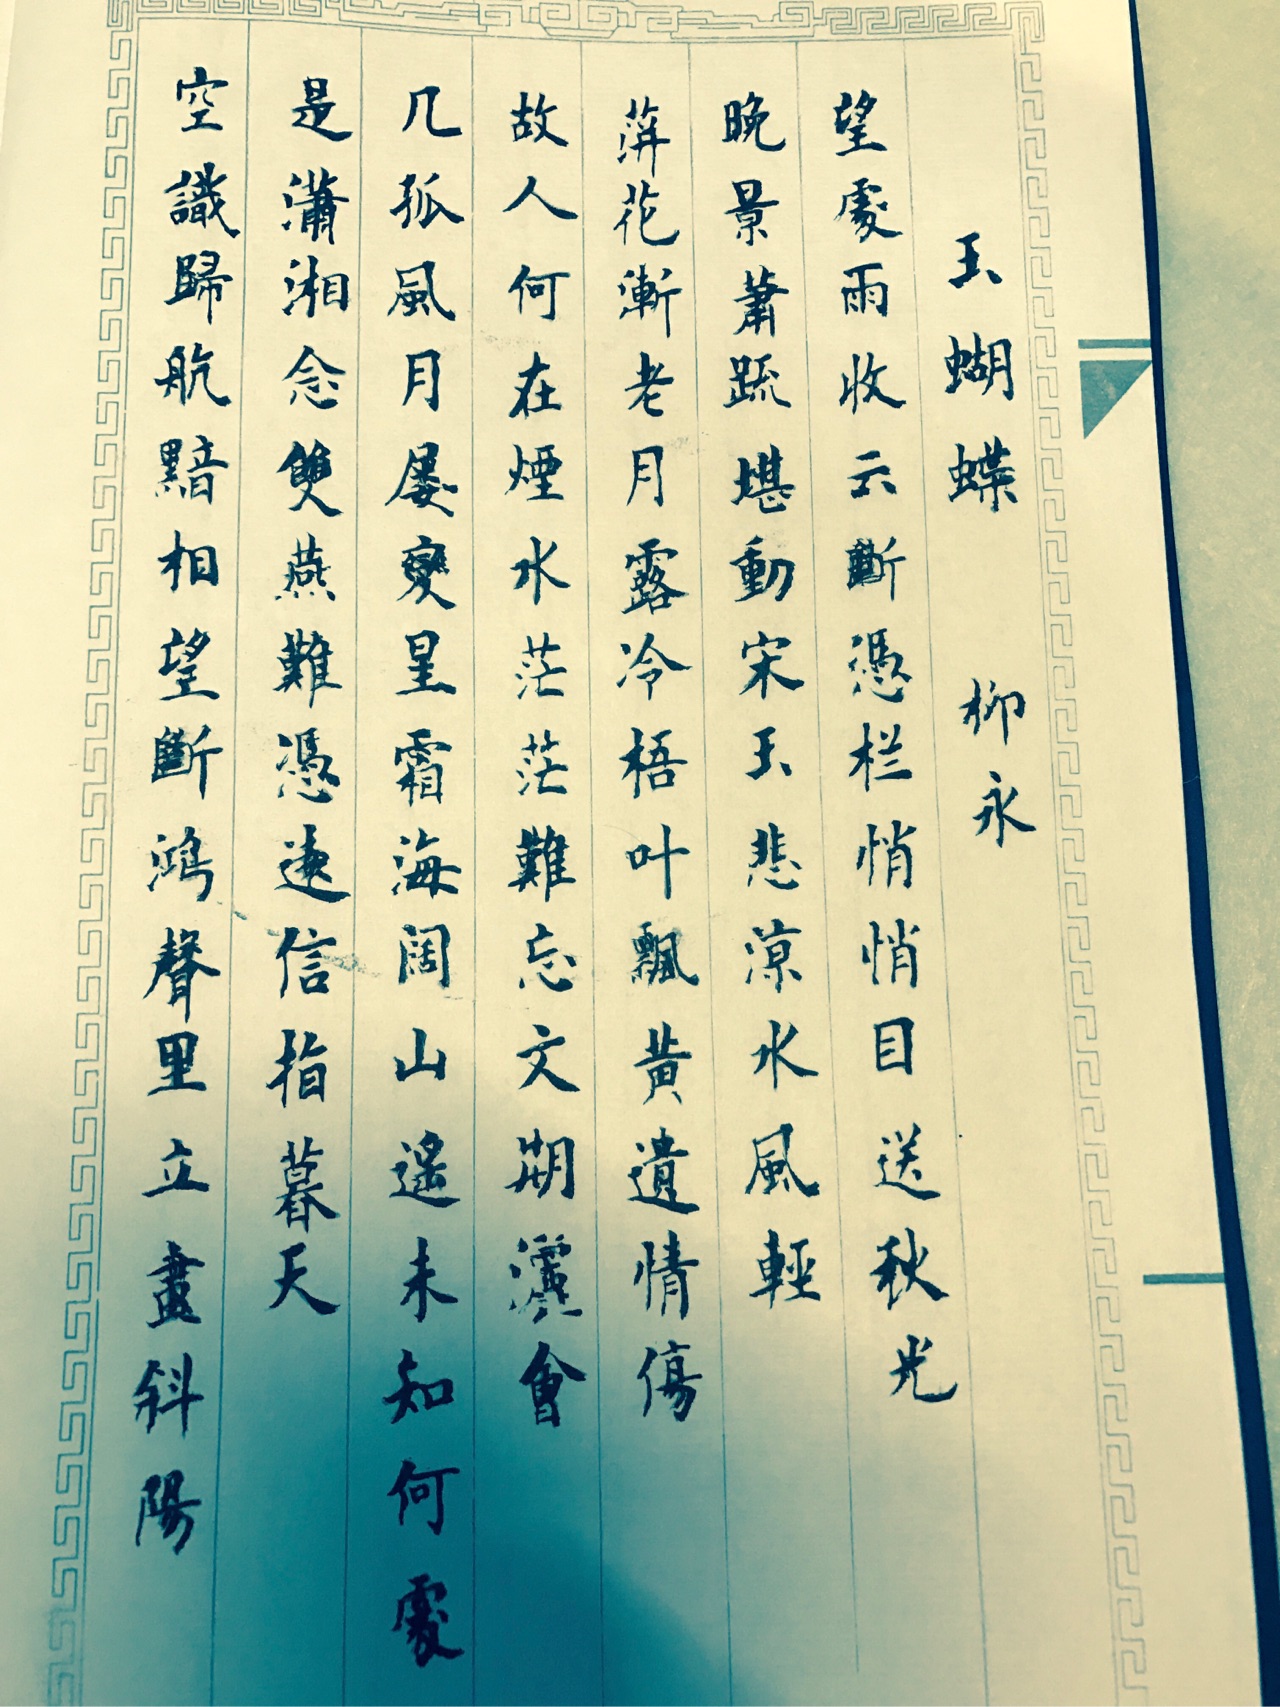 玉蝴蝶 柳永
望處雨收云斷憑栏悄悄目送秋光
晚景蕭疏堪動宋玉悲涼水風輕
蓱花漸老月露冷梧叶飄黃遺情傷
故人何在煙水茫茫難忘文期會
几孤風月屡變星霜海阔山遙未知何處
是瀟湘念雙燕難憑遠信指暮天
空識歸航黯相望斷鴻聲里立盡斜陽